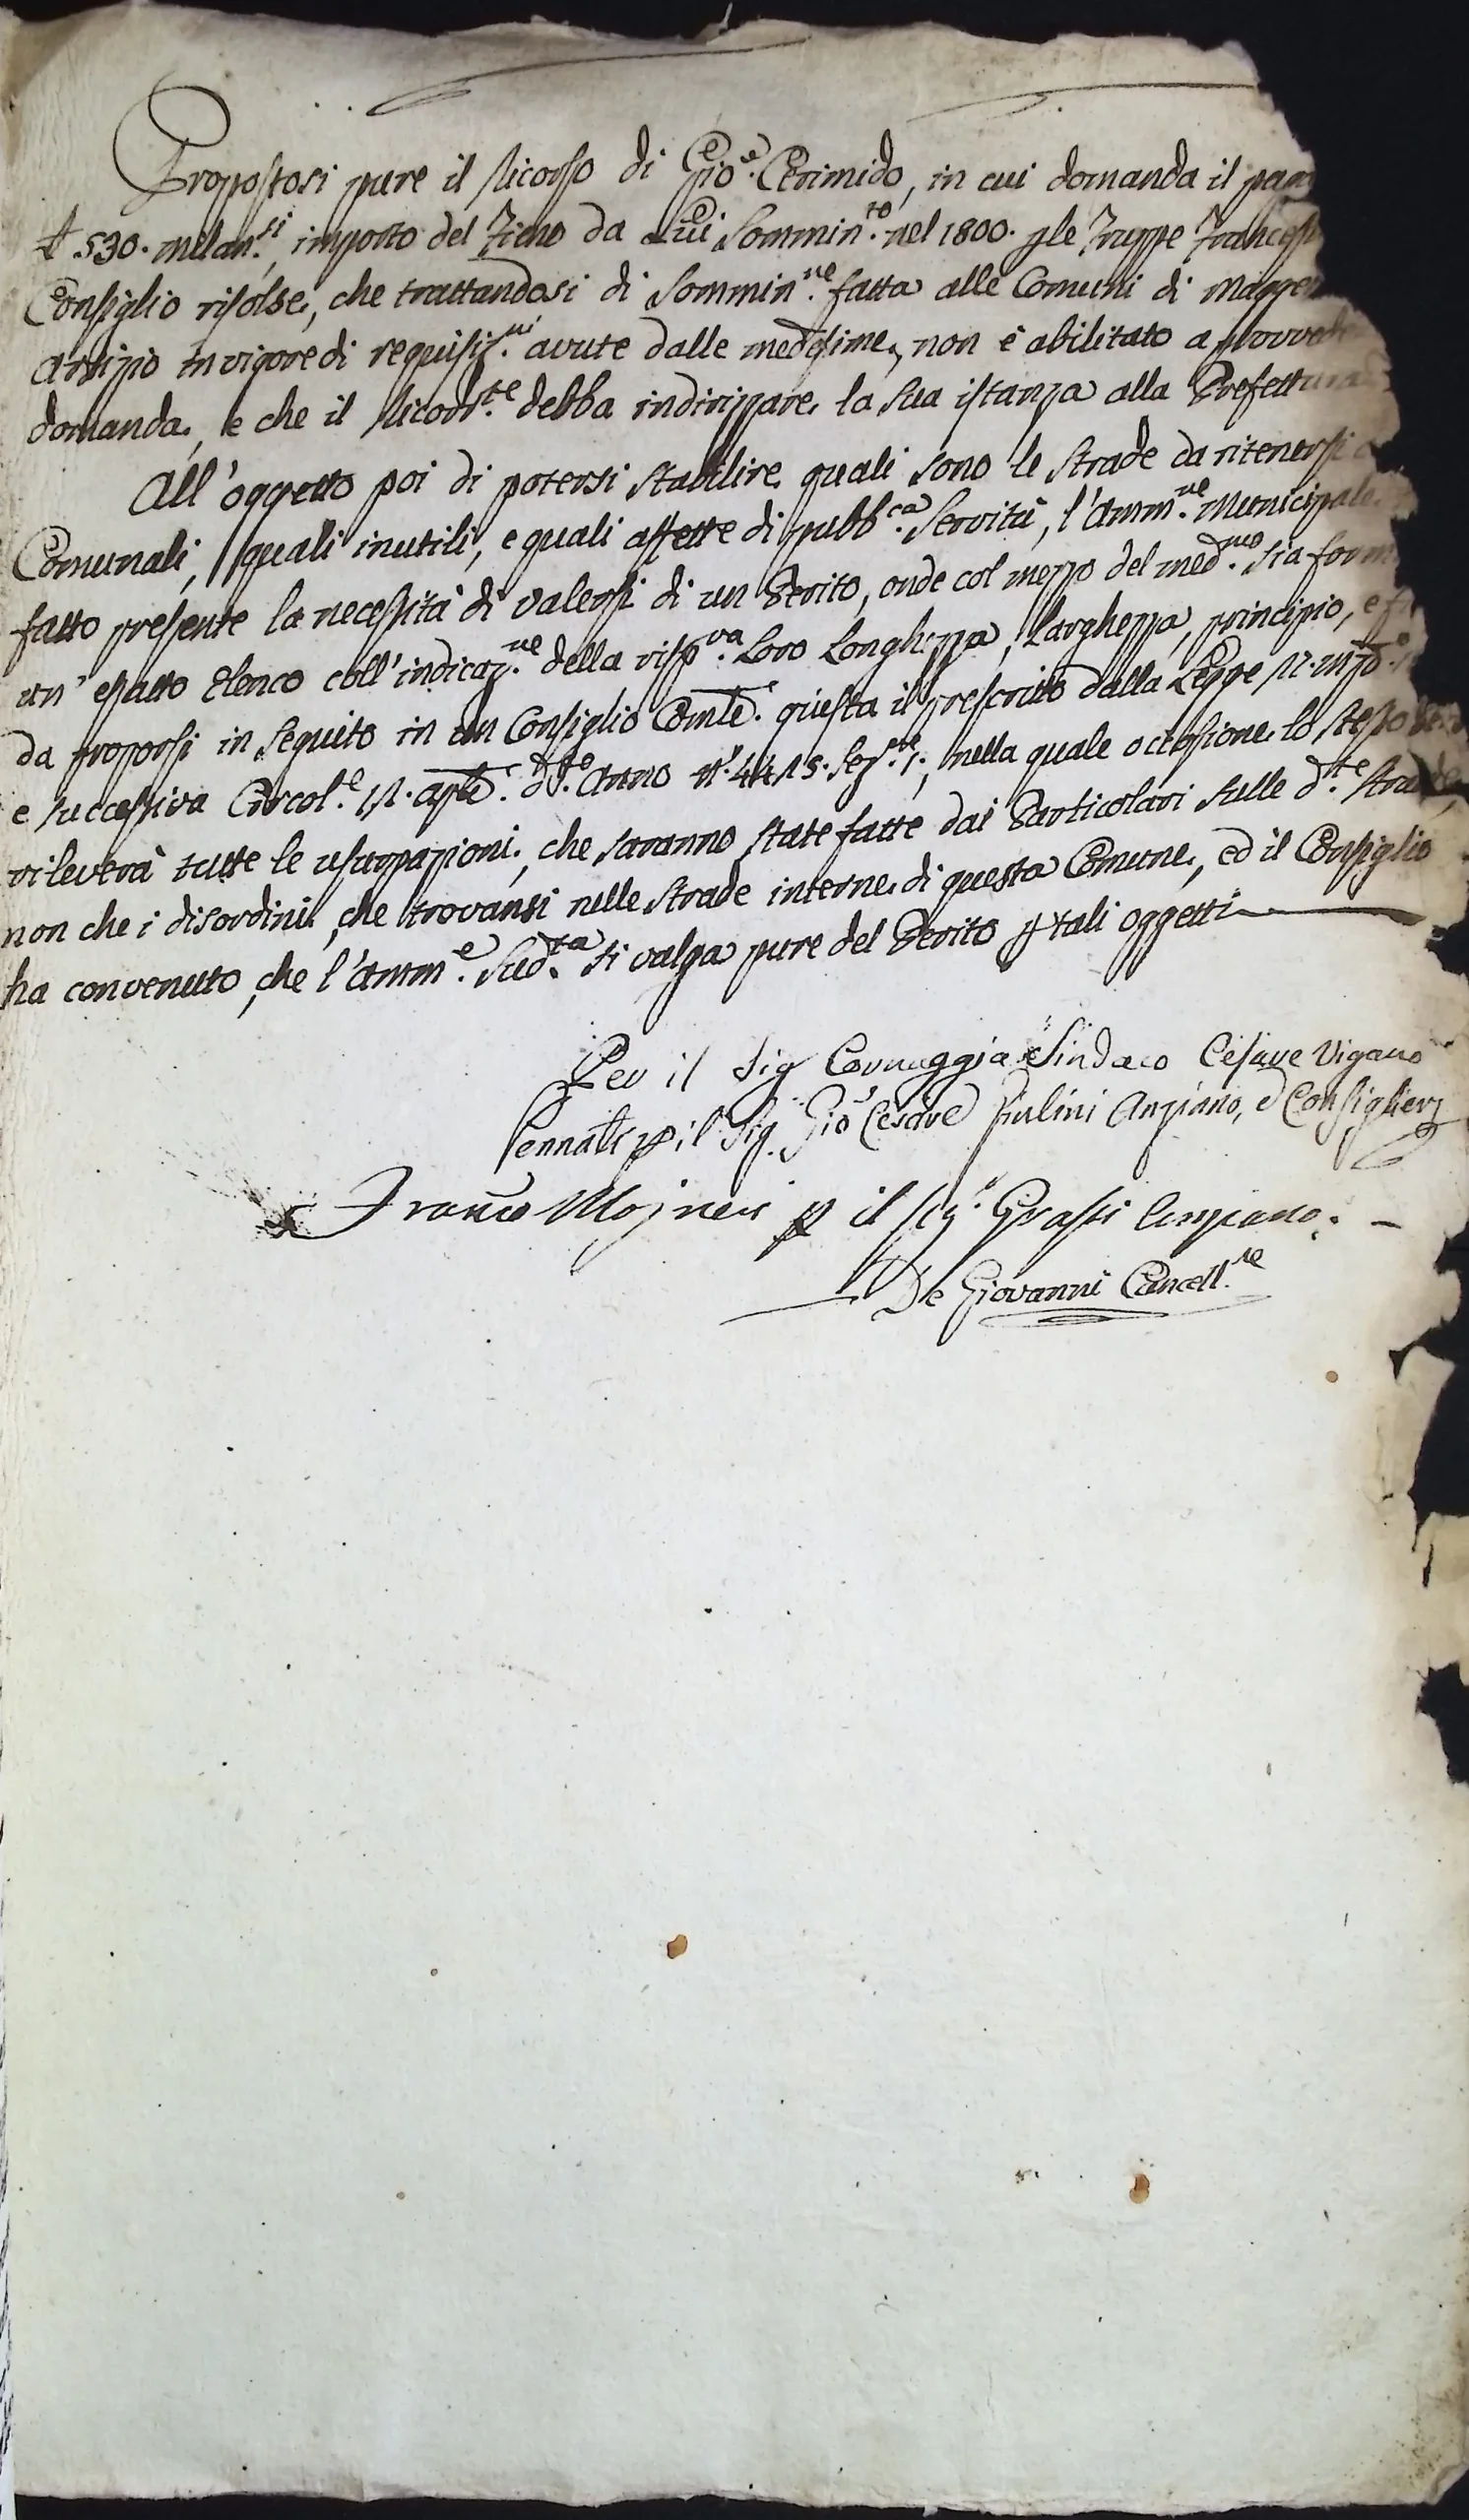 Propostosi pure il Ricorso di Gio.e Cerimido, in cui domanda il pag
₤ 530. milan.si importo del Fieno da Lui Sommin.to nel 1800. ple Truppe Frances
Consiglio risolse, che trattandosi di Sommin.ne fatta alle Comuni di
Arsizio in vigore di requisiz.ni avute dalle medesime, non è abilitato a provvede
domanda, e che il Ricorr.te debba indirizzare la sua istanza alla Prefettura
All'oggetto poi di potersi stabilire quali sono le Strade da ritenersi
Comunali, quali inutili, e quali affette di pubb.ca Servitù, l'Amm.ne Municipale
fatto presente la necessità di valersi di un Perito, onde col mezzo del med.mo sia form
un' esatto Elenco coll'indicaz.ne della risp.va Loro Longhezza, Larghezza, principio, e fi
da proporsi in seguito in un Consiglio Com.le giusta il prescritto dalla Legge
e successiva Circol.e 12. Aple. d.to Anno N.° 4415. Sez.ne 1., nella quale occasione lo stesso
rileverà tutte le usurpazioni, che saranno state fatte dai Particolari sulle d.te Strade,
non che i disordini, che trovansi nelle Strade interne di questa Comune, ed il Consiglio
ha convenuto, che l'Amm.e Sud.ta si valga pure del Perito p tali oggetti
Per il Sig Cornaggia Sindaco Cesare Vigano
Pennati p il Sig. Gio Cesare Piulini Anziano, e Consiglier
Franco p il Sig.r Grassi Anziano. –
De Giovanni Cancell.re